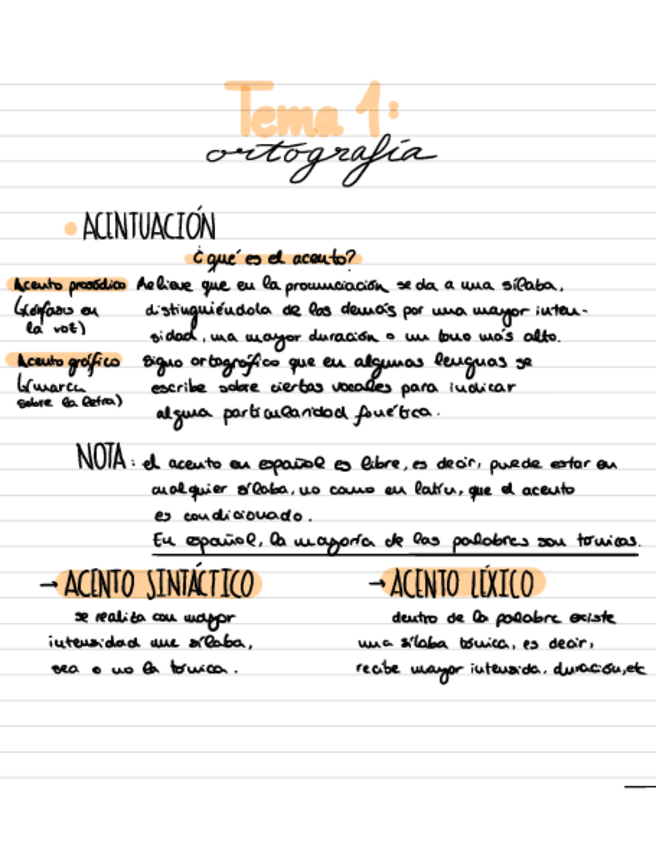 Tema 1:
ortografía
• ACENTUACIÓN
¿qué es el acento?
Acento prosódico Relieve que en la pronunciación se da a una sílaba,
(énfasis en distinguiéndola de las demás por una mayor inten-
la voz) sidad, una mayor duración o un tono más alto.
Acento gráfico signo ortográfico que en algunas lenguas se
(marca escribe sobre ciertas vocales para indicar
sobre la letra) alguna particularidad fonética.
NOTA: el acento en español es libre, es decir, puede estar en
cualquier sílaba, no como en latín, que el acento
es condicionado.
En español, la mayoría de las palabras son tónicas.
→ ACENTO SINTÁCTICO → ACENTO LÉXICO
se realiza con mayor dentro de la palabra existe
intensidad una sílaba, una sílaba tónica, es decir,
sea o no la tónica. recibe mayor intensida. duración, etc